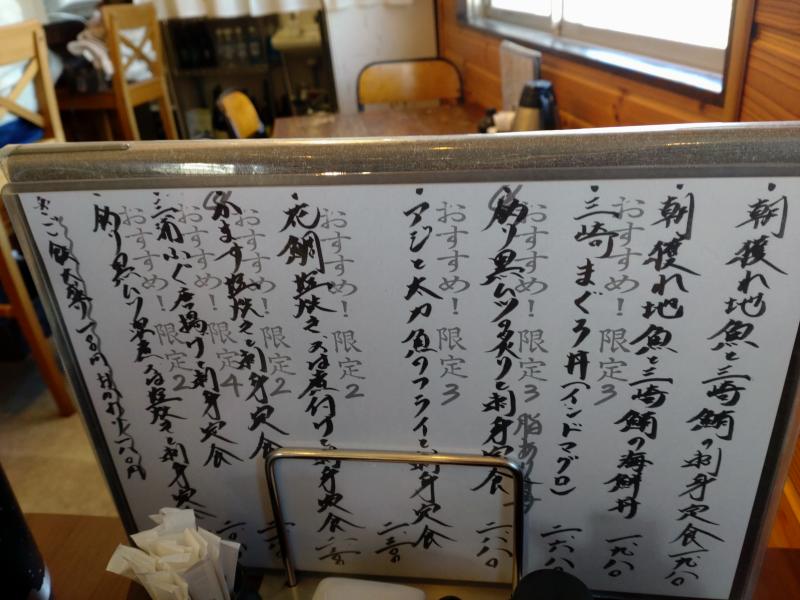 ・朝獲れ地魚と三崎鮪の刺身定食 一九八〇
・朝獲れ地魚と三崎鮪の海鮮丼 一九八〇
おすすめ！限定3
・三崎まぐろ丼(インドマグロ) 二六八〇
おすすめ！限定3 脂あり
・釣り黒ムツの炙りと刺身定食 二八八〇
おすすめ！限定3
・アジと太刀魚のフライと刺身定食 二三八〇
おすすめ！限定2
・花鯛塩焼き又は煮付けと刺身定食
おすすめ！限定2
・かます塩焼きと刺身定食
おすすめ！限定4
・三浦ふぐ唐揚げと刺身定食
おすすめ！限定2
・釣り黒ムツ煮又は塩焼きと刺身定食
ご飯大盛り